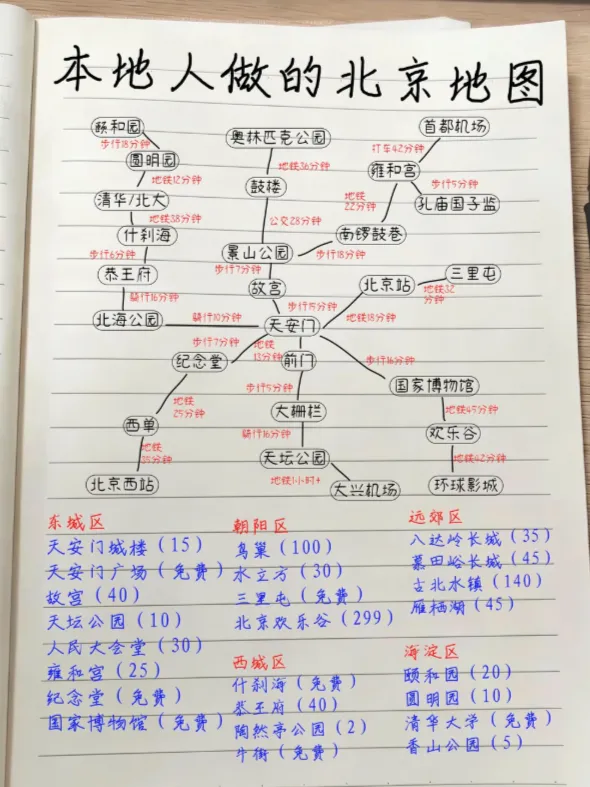 本地人做的北京地图
颐和园
奥林匹克公园
首都机场
步行18分钟
打车42分钟
圆明园
地铁36分钟
雍和宫
地铁12分钟
步行5分钟
清华/北大
鼓楼
地铁
22分钟
孔庙国子监
地铁38分钟
公交28分钟
什刹海
南锣鼓巷
步行6分钟
景山公园
步行18分钟
恭王府
步行7分钟
北京站
三里屯
骑行16分钟
故宫
地铁32
分钟
步行15分钟
北海公园
骑行10分钟
天安门
地铁18分钟
步行7分钟
地铁
13分钟
纪念堂
前门
步行16分钟
步行5分钟
国家博物馆
地铁
25分钟
大栅栏
地铁45分钟
西单
骑行16分钟
欢乐谷
地铁
35分钟
天坛公园
地铁42分钟
地铁1小时+
北京西站
大兴机场
环球影城
东城区
天安门城楼(15)
天安门广场(免费)
故宫(40)
天坛公园(10)
人民大会堂(30)
雍和宫(25)
纪念堂(免费)
国家博物馆(免费)
朝阳区
鸟巢(100)
水立方(30)
三里屯(免费)
北京欢乐谷(299)
西城区
什刹海(免费)
恭王府(40)
陶然亭公园(2)
牛街(免费)
远郊区
八达岭长城(35)
慕田峪长城(45)
古北水镇(140)
雁栖湖(45)
海淀区
颐和园(20)
圆明园(10)
清华大学(免费)
香山公园(5)